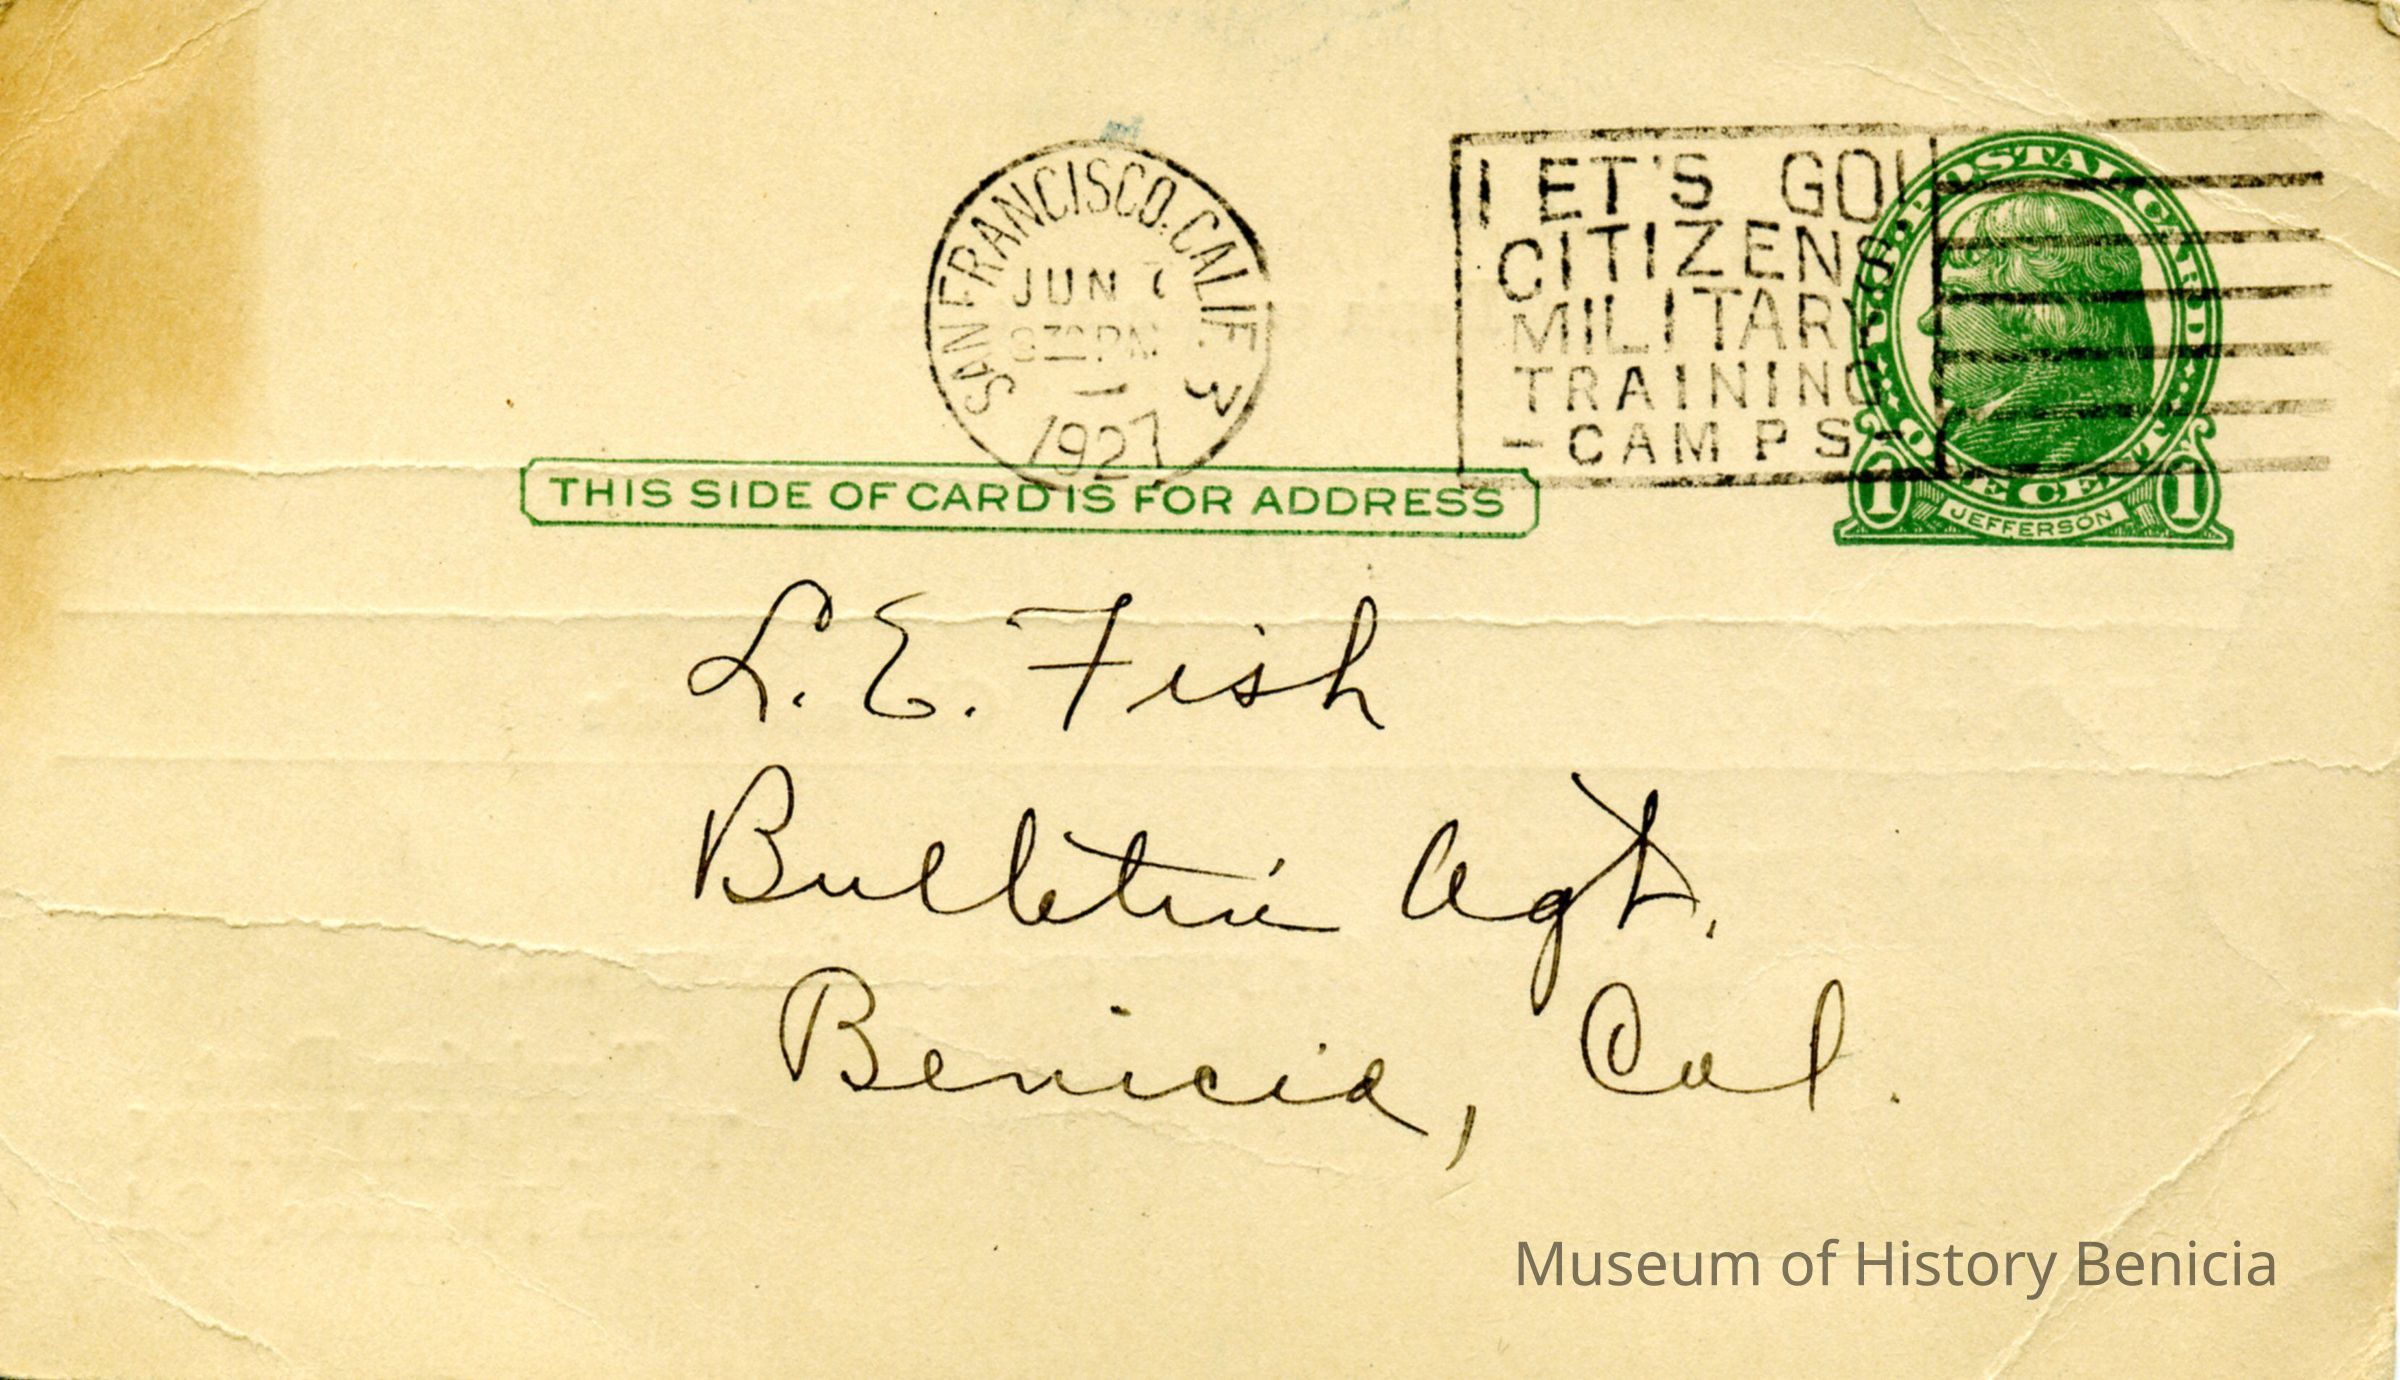 SAN FRANCISCO, CALIF. 3
JUN 7
PM
1
1927
LET'S GO!
CITIZENS
MILITARY
TRAINING
-CAMPS-
U.S. POSTAL CARD
ONE CENT
1 JEFFERSON 1
THIS SIDE OF CARD IS FOR ADDRESS
L. E. Fish
Bulletin Agt.
Benicia, Cal.
Museum of History Benicia